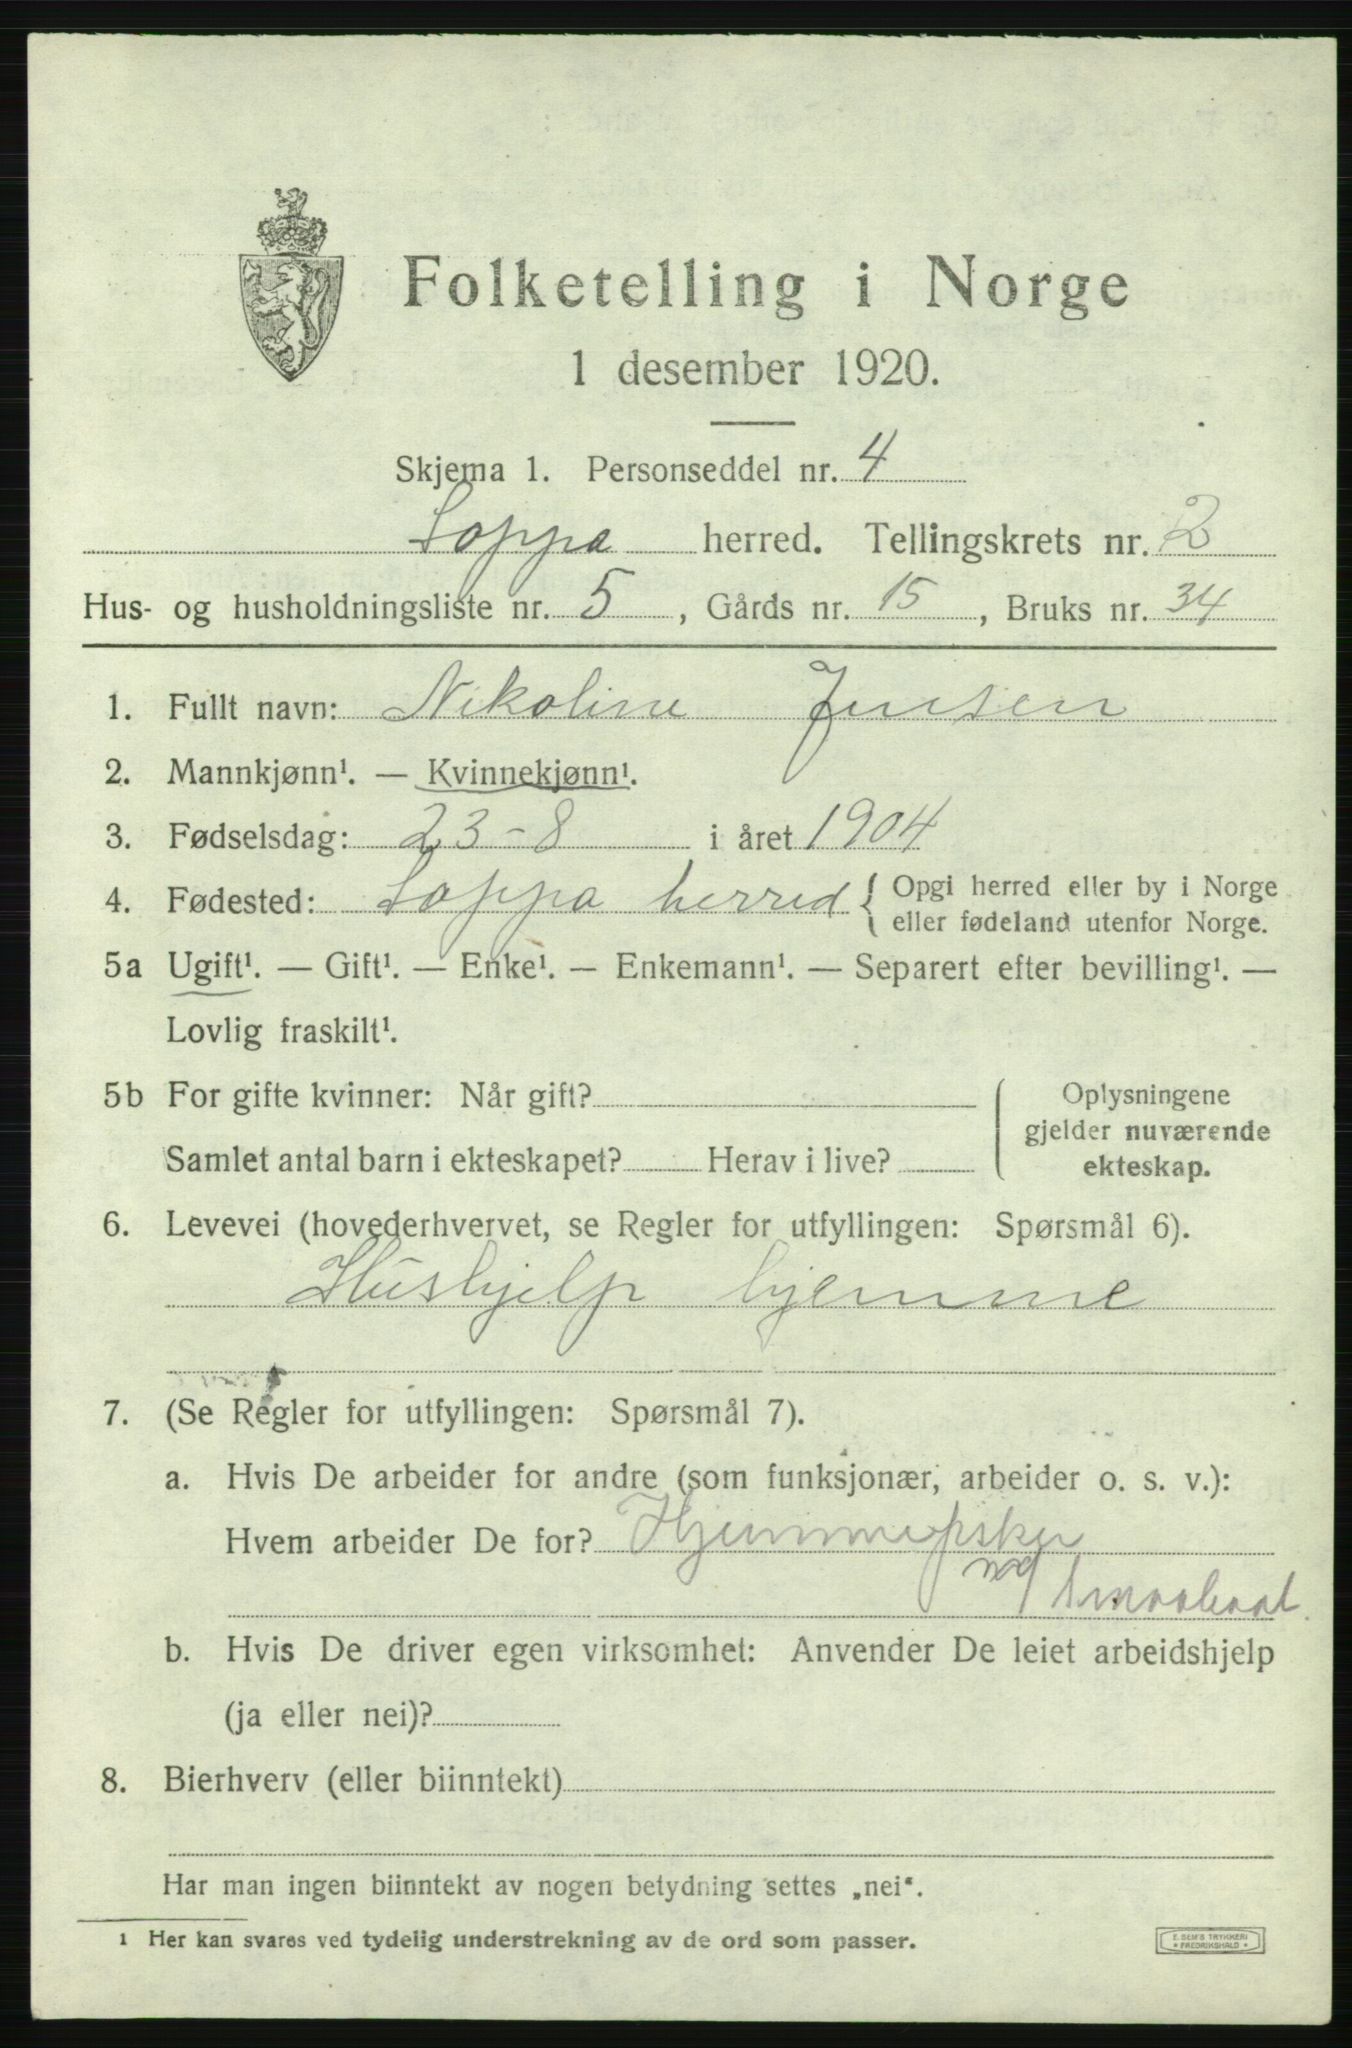 Folketelling i Norge
1 desember 1920.
Skjema 1. Personseddel nr. 4
Loppa herred. Tellingskrets nr. 2
Hus- og husholdningsliste nr. 5, Gårds nr. 15, Bruks nr. 34
1. Fullt navn: Nikoline Jensen
2. Mannkjønn¹. — Kvinnekjønn¹.
3. Fødselsdag: 23-8 i året 1904
4. Fødested: Loppa herred { Opgi herred eller by i Norge
eller fødeland utenfor Norge.
5a Ugift¹. — Gift¹. — Enke¹. — Enkemann¹. — Separert efter bevilling¹. —
Lovlig fraskilt¹.
5b For gifte kvinner: Når gift?
Samlet antal barn i ekteskapet? Herav i live?
Oplysningene
gjelder nuværende
ekteskap.
6. Levevei (hovederhvervet, se Regler for utfyllingen: Spørsmål 6).
Hushjelp hjemme
7. (Se Regler for utfyllingen: Spørsmål 7).
a. Hvis De arbeider for andre (som funksjonær, arbeider o. s. v.):
Hvem arbeider De for? Hjemmefisker
m/ smaabaat
b. Hvis De driver egen virksomhet: Anvender De leiet arbeidshjelp
(ja eller nei)?
8. Bierhverv (eller biinntekt)
Har man ingen biinntekt av nogen betydning settes „nei“.
1 Her kan svares ved tydelig understrekning av de ord som passer.
E. SEM'S TRYKKERI
FREDRIKSHALD